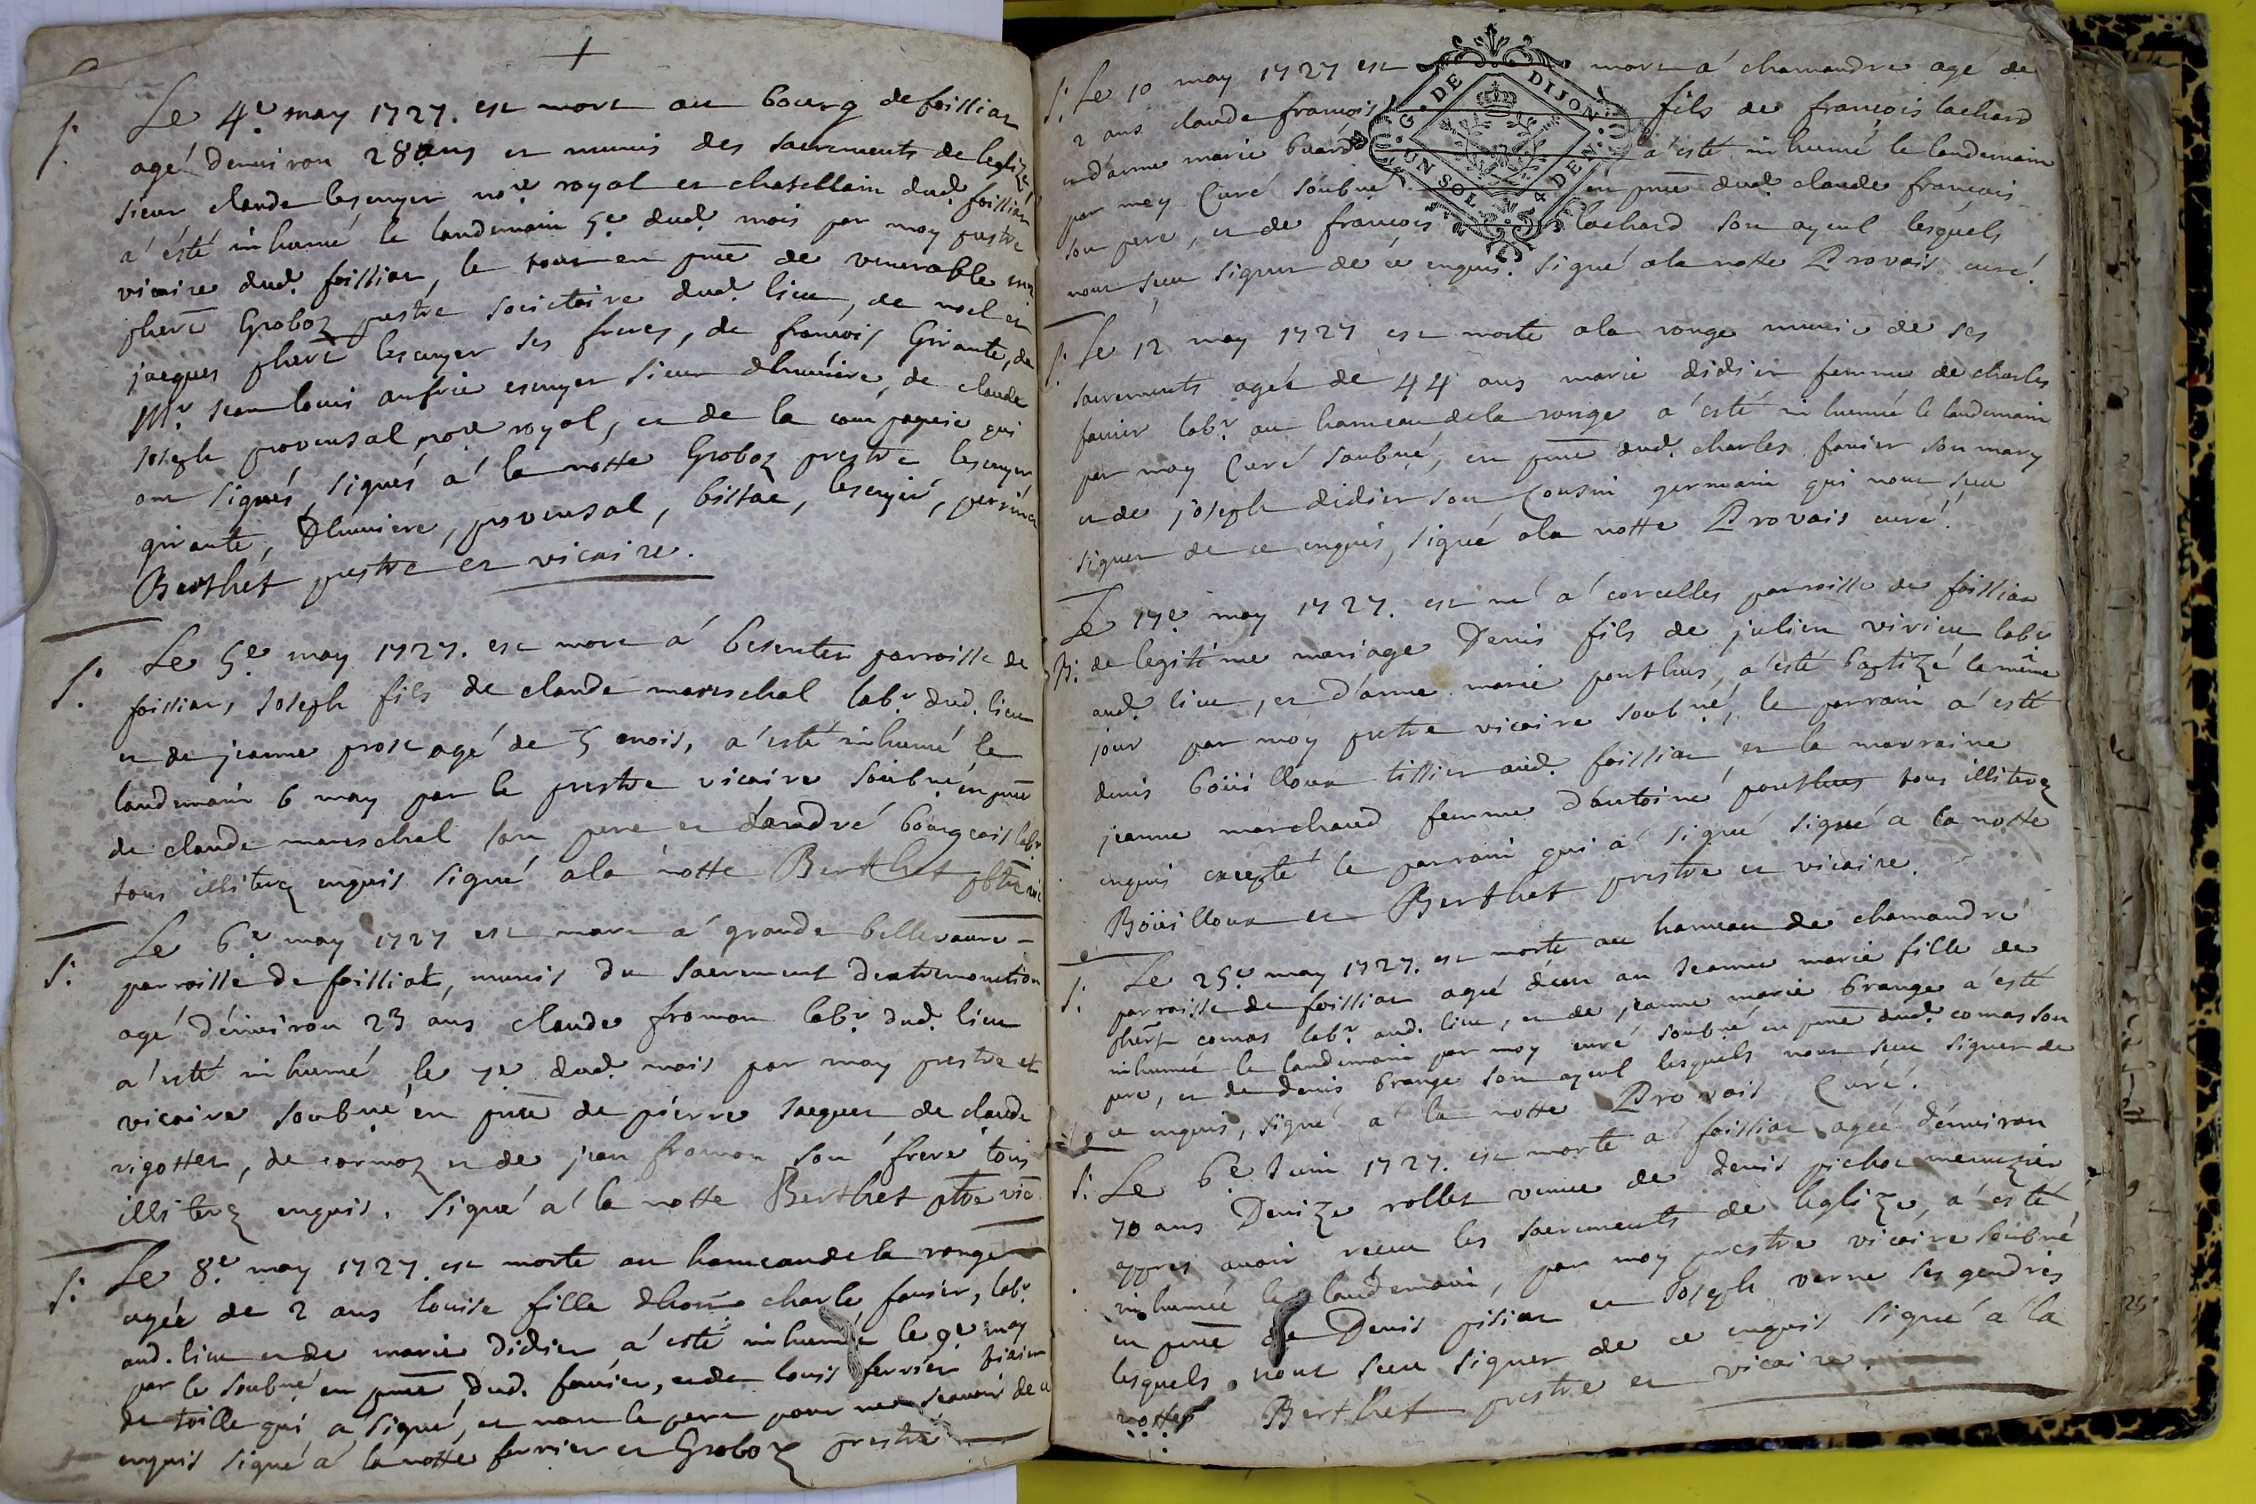 +
S. Le 4e. may 1727. est mort au bourg de foissiat
agé denuiron 28 ans et munis des sacrements de leglize
sieur claude lescuyer nore. royal et chastellain dud. foissiat
a' ésté inhumé le landemain 5e. dud. mois par moy prestre
vicaire dud. foissiat, le tout en pnce de venerable mre
phert Groboz prestre societaire dud. lieu, de noel et
jacques phert lescuyer ses freres, de francois Girante, de
Mr. jean louis anfrie escuyer sieur dhumiere, de claude
Joseph provensal nore royal, et de la compagnie qui
ont signés, signés a' la notte Groboz prestre lescuyer
girante, Dhumiere, provensal, lescuyer,
Berthet prestre et vicaire.
S. Le 5e. may 1727. est mort a' besentet parroisse de
foissiat, Joseph fils de claude mareschal labr. dud. lieu
et de jeanne prost agé de 5 mois, a' esté inhumé le
landemain 6 may par le prestre vicaire soubné en pnce
de claude mareschal son pere et d'andré bourgeois labr.
tous illiterez enquis signé a la notte Berthet pbtre vic
S. Le 6e. may 1727 est mort a' grande bellevaure
parroisse de foissiat, munis du sacrement dextremonction
agé d'énuiron 23 ans claude fromon labr. dud. lieu
a' esté inhumé le 7e. dud. mois par moy prestre et
vicaire soubné en pnce de pierre Jaquet de claude
vigottet, de cormoz et de jean fromon son frere tous
illiterez enquis. Signé a' la notte Berthet ptre vic
S. Le 8e. may 1727. est morte au hameau de la ronge
agée de 2 ans louise fille dhone charle favier, labr.
aud. lieu et de marie didier a' esté inhumée le 9e may
par le soubné en pnce dud. favier, et de louis ferrier
de qui a signé, et non le pere pour ne scauoir de ce
enquis signé a' la notte ferrier et Groboz prestre
G. DE DIJON
UN SOL 4 DEN.
S. Le 10 may 1727 est mort a' chamandre agé de
2 ans claude francois fils de francois lachard
et d'anne marie buard a' esté inhumé le landemain
par moy Curé soubné en pnce dud. claude francois
son pere, et de francois lachard son ayeul lesquels
nont sceu signer de ce enquis. Signé a la notte Provais curé.
S. Le 12 may 1727 est morte a la ronge munie de ses
sacrements agée de 44 ans marie didier femme de charles
favier labr. au hameau de la ronge a' esté inhumé le landemain
par moy Curé soubné, en pnce dud. charles favier son mary
et de joseph didier son Cousin germain qui nont sceu
signer de ce enquis, signé a la notte Provais curé.
B. Le 17e. may 1727. est né a' corcelles parroisse de foissiat
de legitime mariage Denis fils de julien vivien labr.
aud. lieu, et d'anne marie ponthus, a' esté baptizé le même
jour par moy prestre vicaire soubné, le parrain a' esté
denis böüilloux tissier aud. foissiat et la marraine
jeanne marchand femme d'antoine ponthus tous illiterez
enquis excepté le parrain qui a' signé signé a la notte
Böüilloux et Berthet prestre et vicaire.
S. Le 25e. may 1727. est morte au hameau de chamandre
parroisse de foissiat agée d'un an Jeanne marie fille de
phert comas labr. aud. lieu, et de jeanne marie brange a' esté
inhumée le landemain par moy curé soubné en pnce dud. comas son
pere, et de denis brange son ayeul lesquels nont sceu signer de
ce enquis, signé a' la notte Provais Curé.
S. Le 6e. Juin 1727. est morte a' foissiat agée d'énuiron
70 ans Denize rollet veuve de denis pichot menuzier
appres avoir receu les sacrements de leglize, a' esté
inhumée le landemain, par moy prestre vicaire soubné
en pnce de Denis pisiat et Joseph verne ses gendres
lesquels nont sceu signer de ce enquis signé a' la
notte Berthet prestre et vicaire.